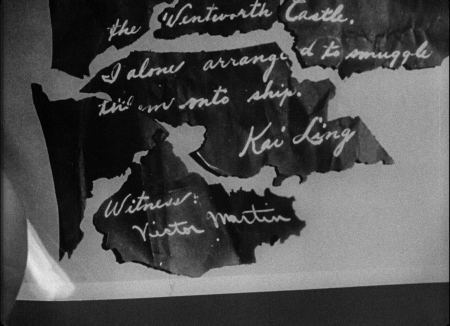 the 'Wentworth' Castle.
I alone arranged to smuggle
them onto ship.
Kai Ling
Witness:
Victor Martin